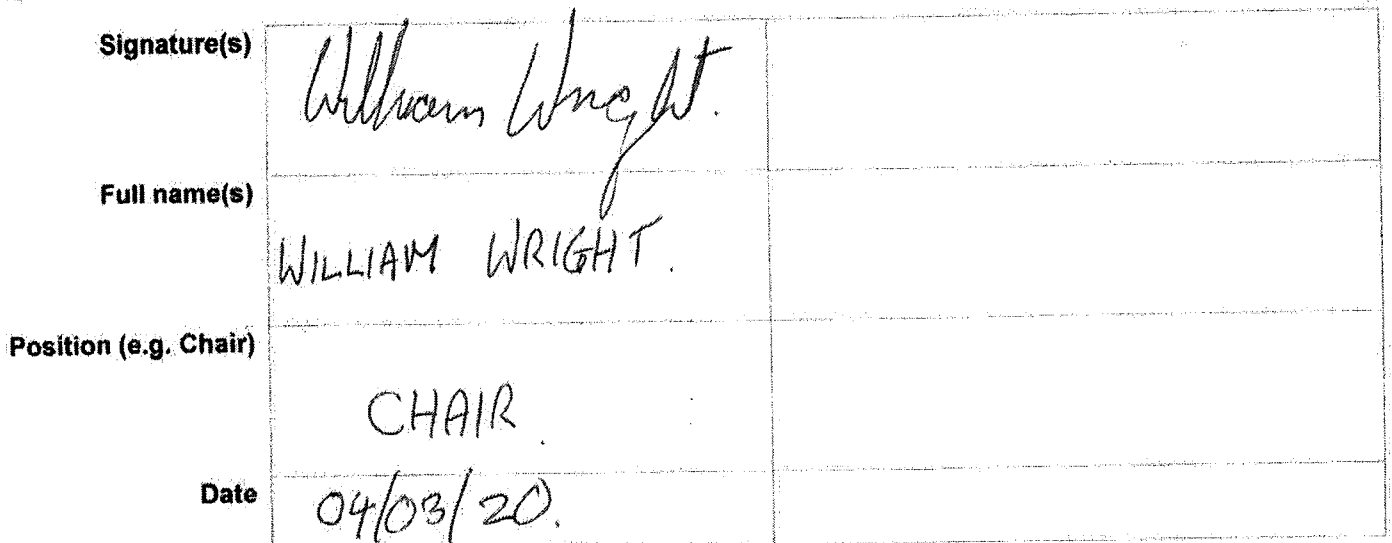 Signature(s) William Wright.
Full name(s) WILLIAM WRIGHT.
Position (e.g. Chair) CHAIR.
Date 04/03/20.